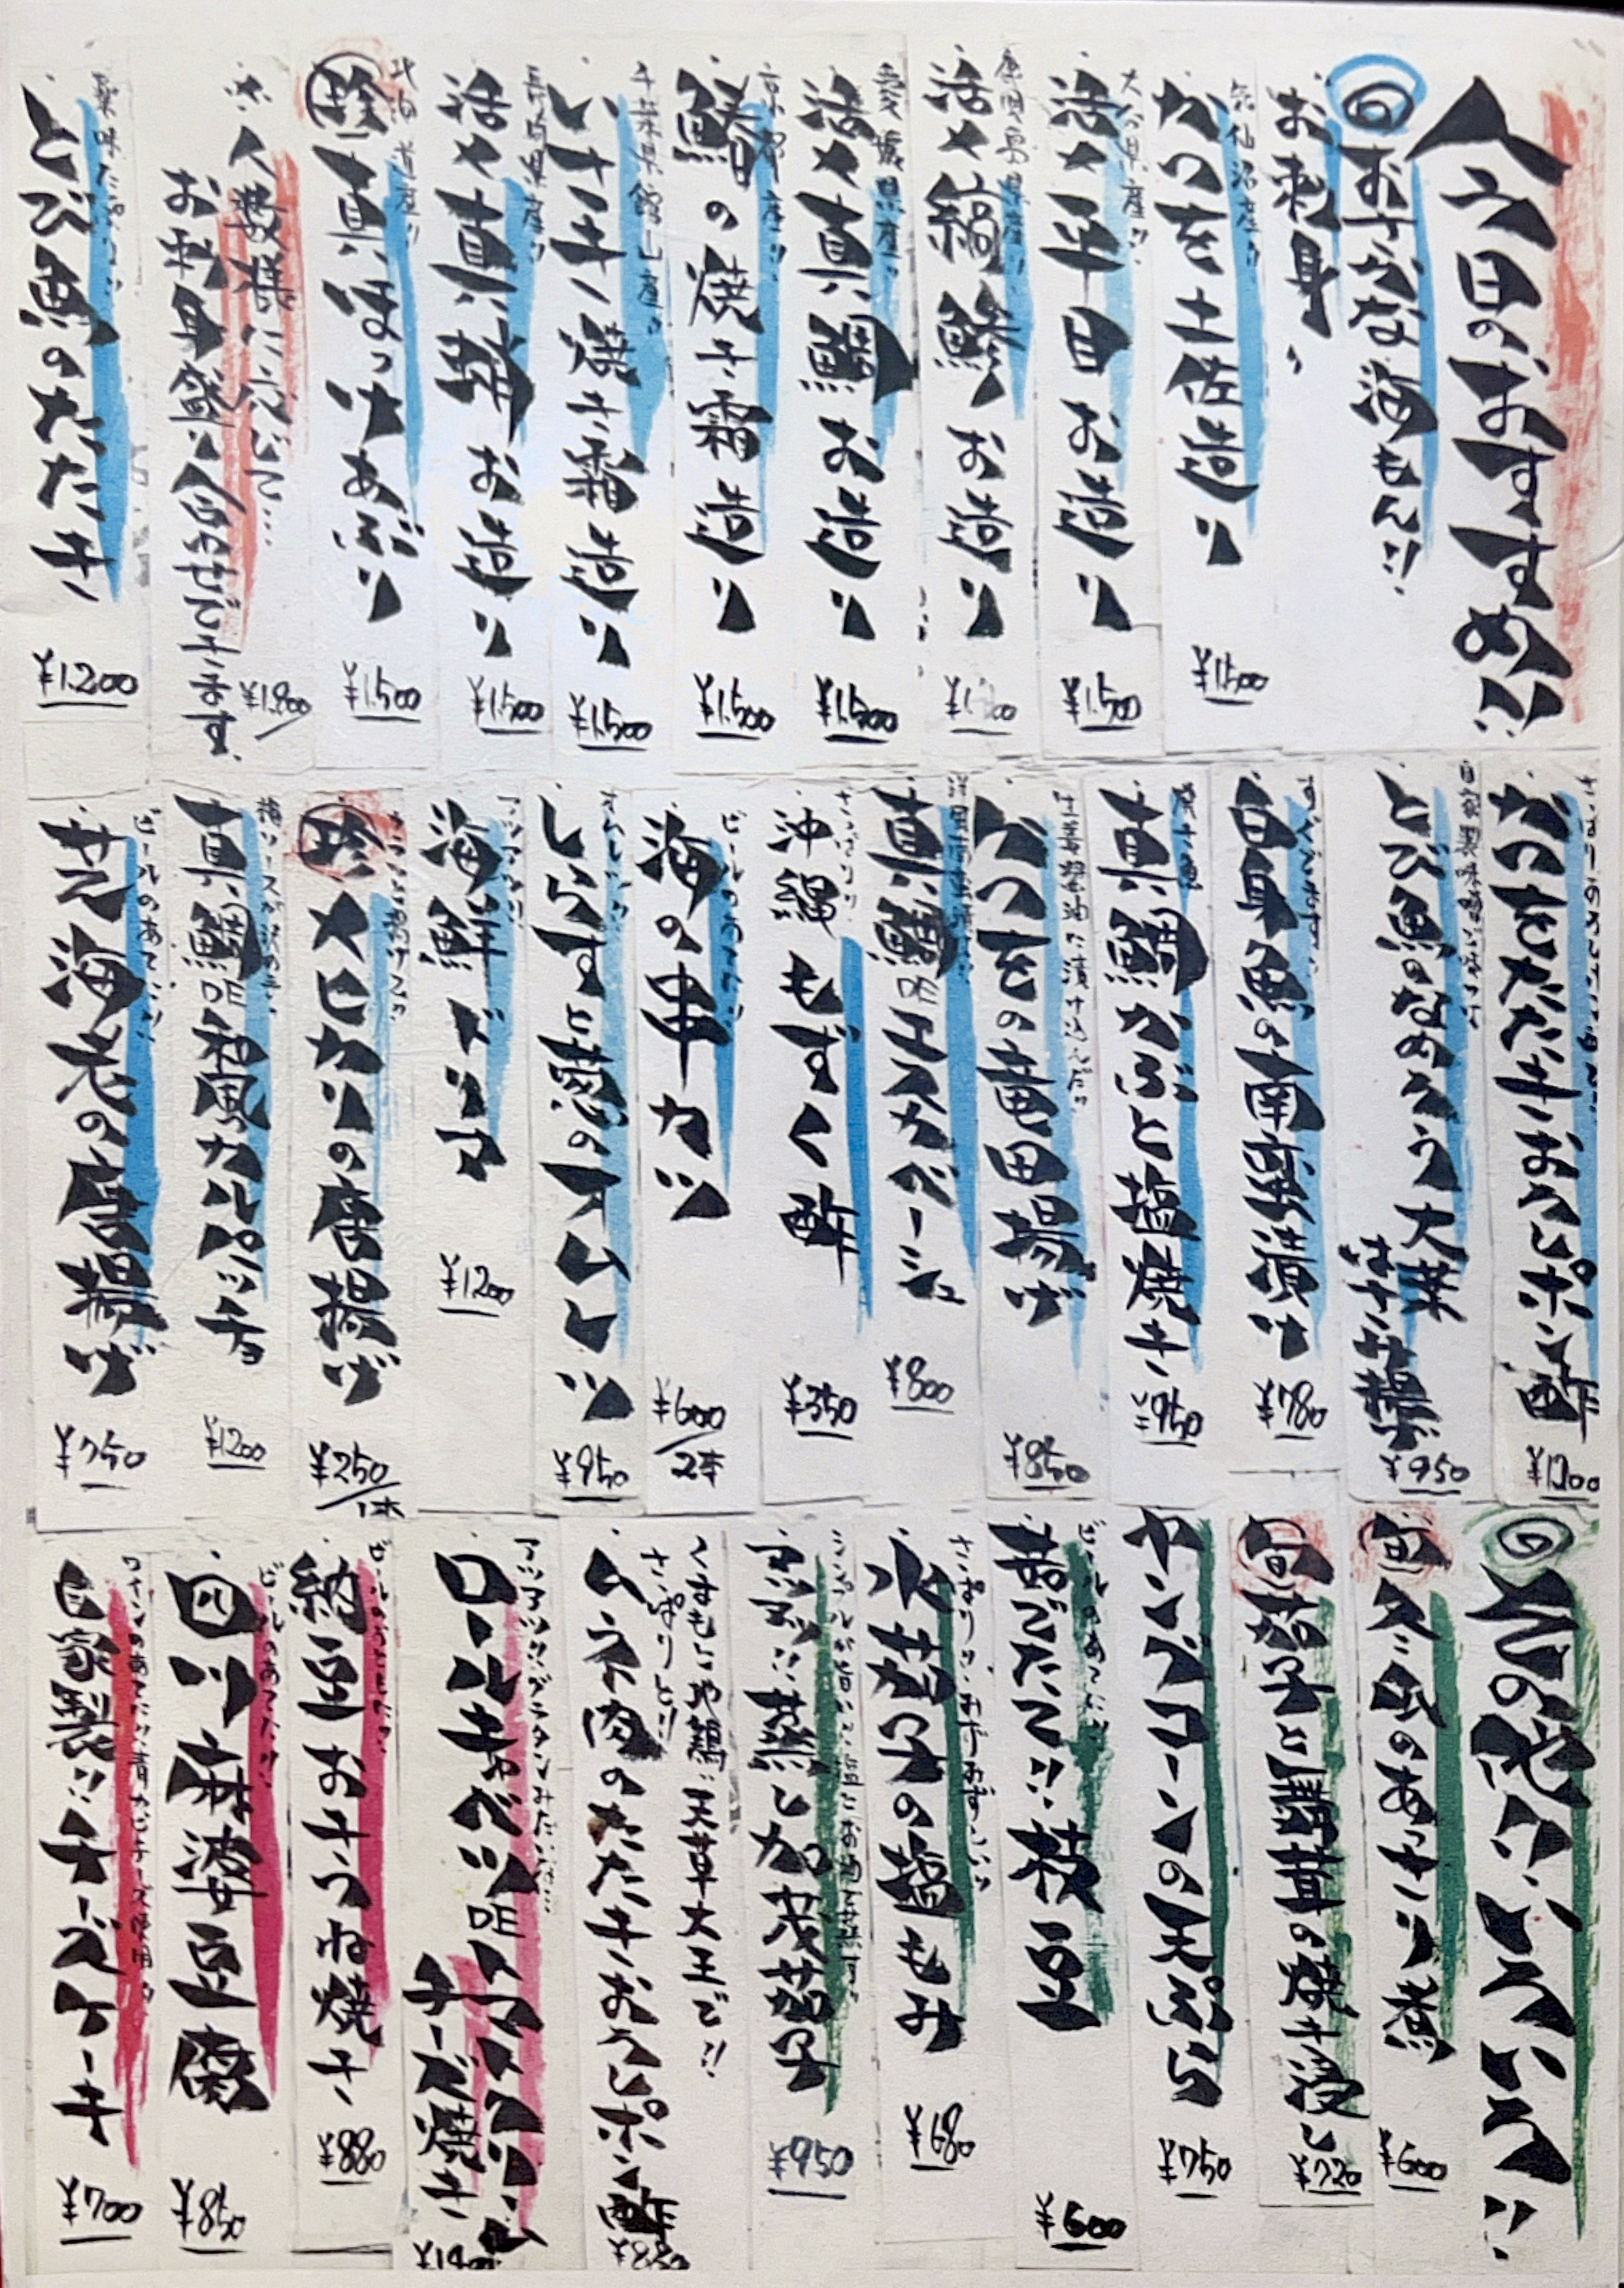 今日のおすすめ!!
お子がな海もん!!
お刺身
気仙沼産!!
かつを土佐造り
¥1,500
大分県産!!
活〆平目お造り
¥1,500
鹿児島県産!!
活〆縞鯵お造り
愛媛県産!!
活〆真鯛お造り
¥1,500
京都産!!
鰆の焼き霜造り
¥1,500
千葉県館山産!!
いさき焼き霜造り
¥1,500
長崎県産!!
活〆真鯵お造り
¥1,500
北海道産!!
珍 真ほっけあぶり
¥1,500
※人数様に応じて…
お刺身盛り合わせできます。
¥1,800/
薬味たっぷり!!
とび魚のたたき
¥1,200
かつをたたきおろしポン酢
¥1200
とび魚のなめろう大葉
はさみ揚げ
¥950
白身魚の南蛮漬け
¥780
焼き魚
真鯛かぶと塩焼き
¥950
生姜醤油に漬け込んだ!!
かつをの竜田揚げ
¥850
真鯛DEエスカベーシュ
¥800
さっぱり!!
沖縄もずく酢
¥350
ビールのあてに!!
海の串カツ
¥600/2本
しらすと葱のオムレツ
¥950
アツアツ!!
海鮮ドリア
¥1200
珍 メヒカリの唐揚げ
¥250/1本
梅ソースが決め手!!
真鯛DE和風カルパッチョ
¥1200
ビールのあてに!!
芝海老の唐揚げ
¥750
その他いろいろ!!
旬 冬瓜のあっさり煮
¥600
旬 茄子と舞茸の焼き浸し
¥720
ヤングコーンの天ぷら
¥750
ビールのあてに!!
茹でたて!!枝豆
¥600
水茄子の塩もみ
¥680
アツアツ!!蒸し加茂茄子
¥950
くまもと地鶏:天草大王で!!
さっぱりと!!
ムネ肉のたたきおろしポン酢
¥850
アツアツ!!グラタンみたいな…
ロールキャベツDEトマトクリーム
チーズ焼き
ビールのおともに!!
納豆おきつね焼き
¥880
ビールのあてに!!
四川麻婆豆腐
¥850
ワインのあてに!!青カビチーズ使用!!
自家製!!チーズケーキ
¥700